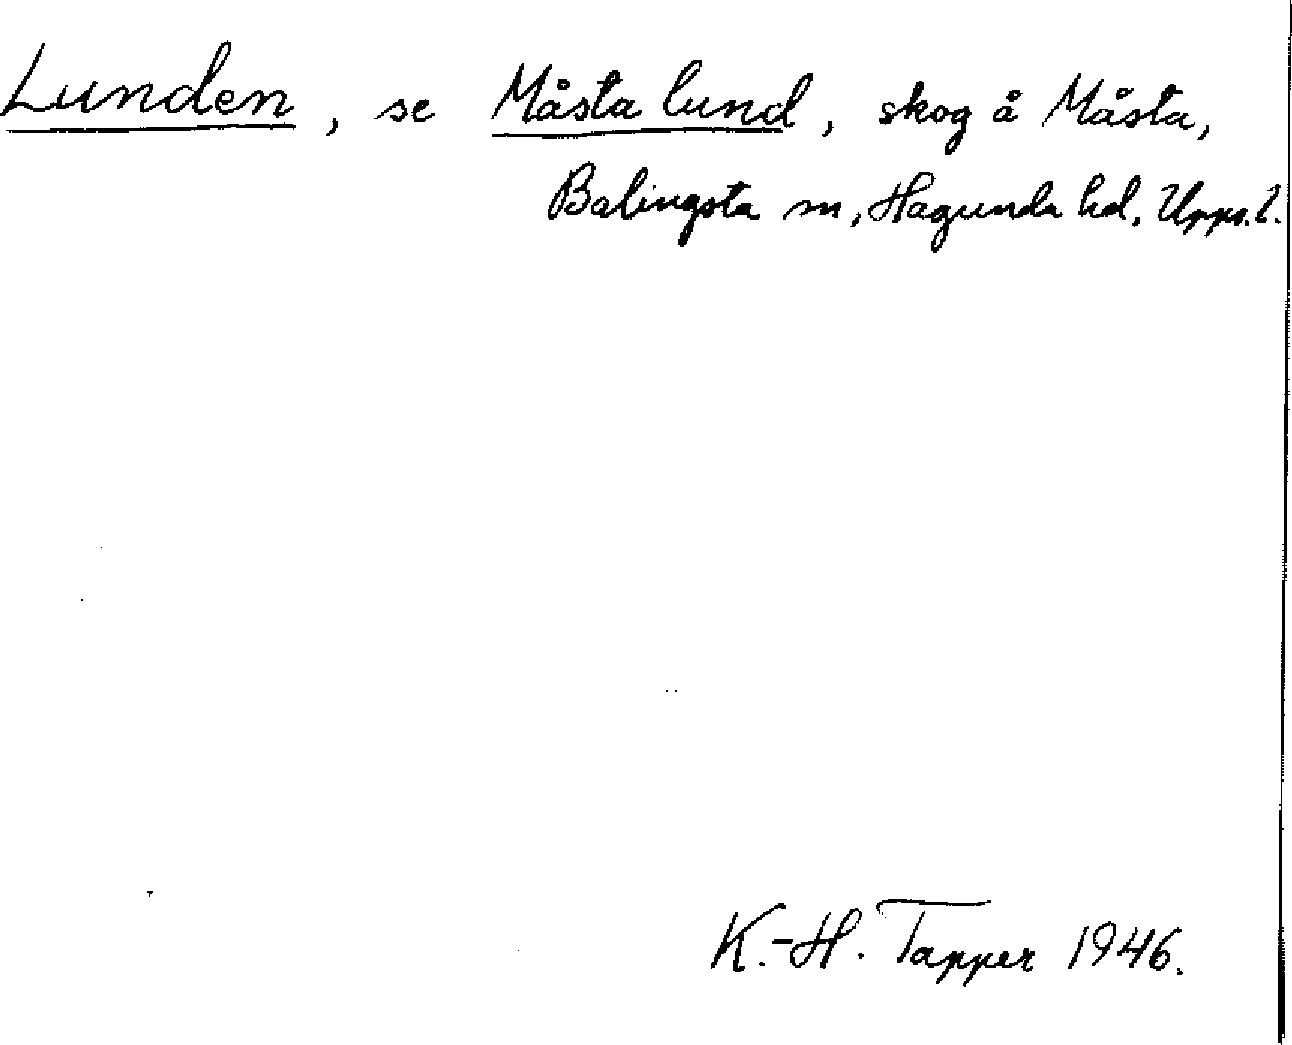 Lunden, se Måsta lund, skog å Måsta,
Balingsta sn, Hagunda hd, Upps. l.
K.-H. Tapper 1946.